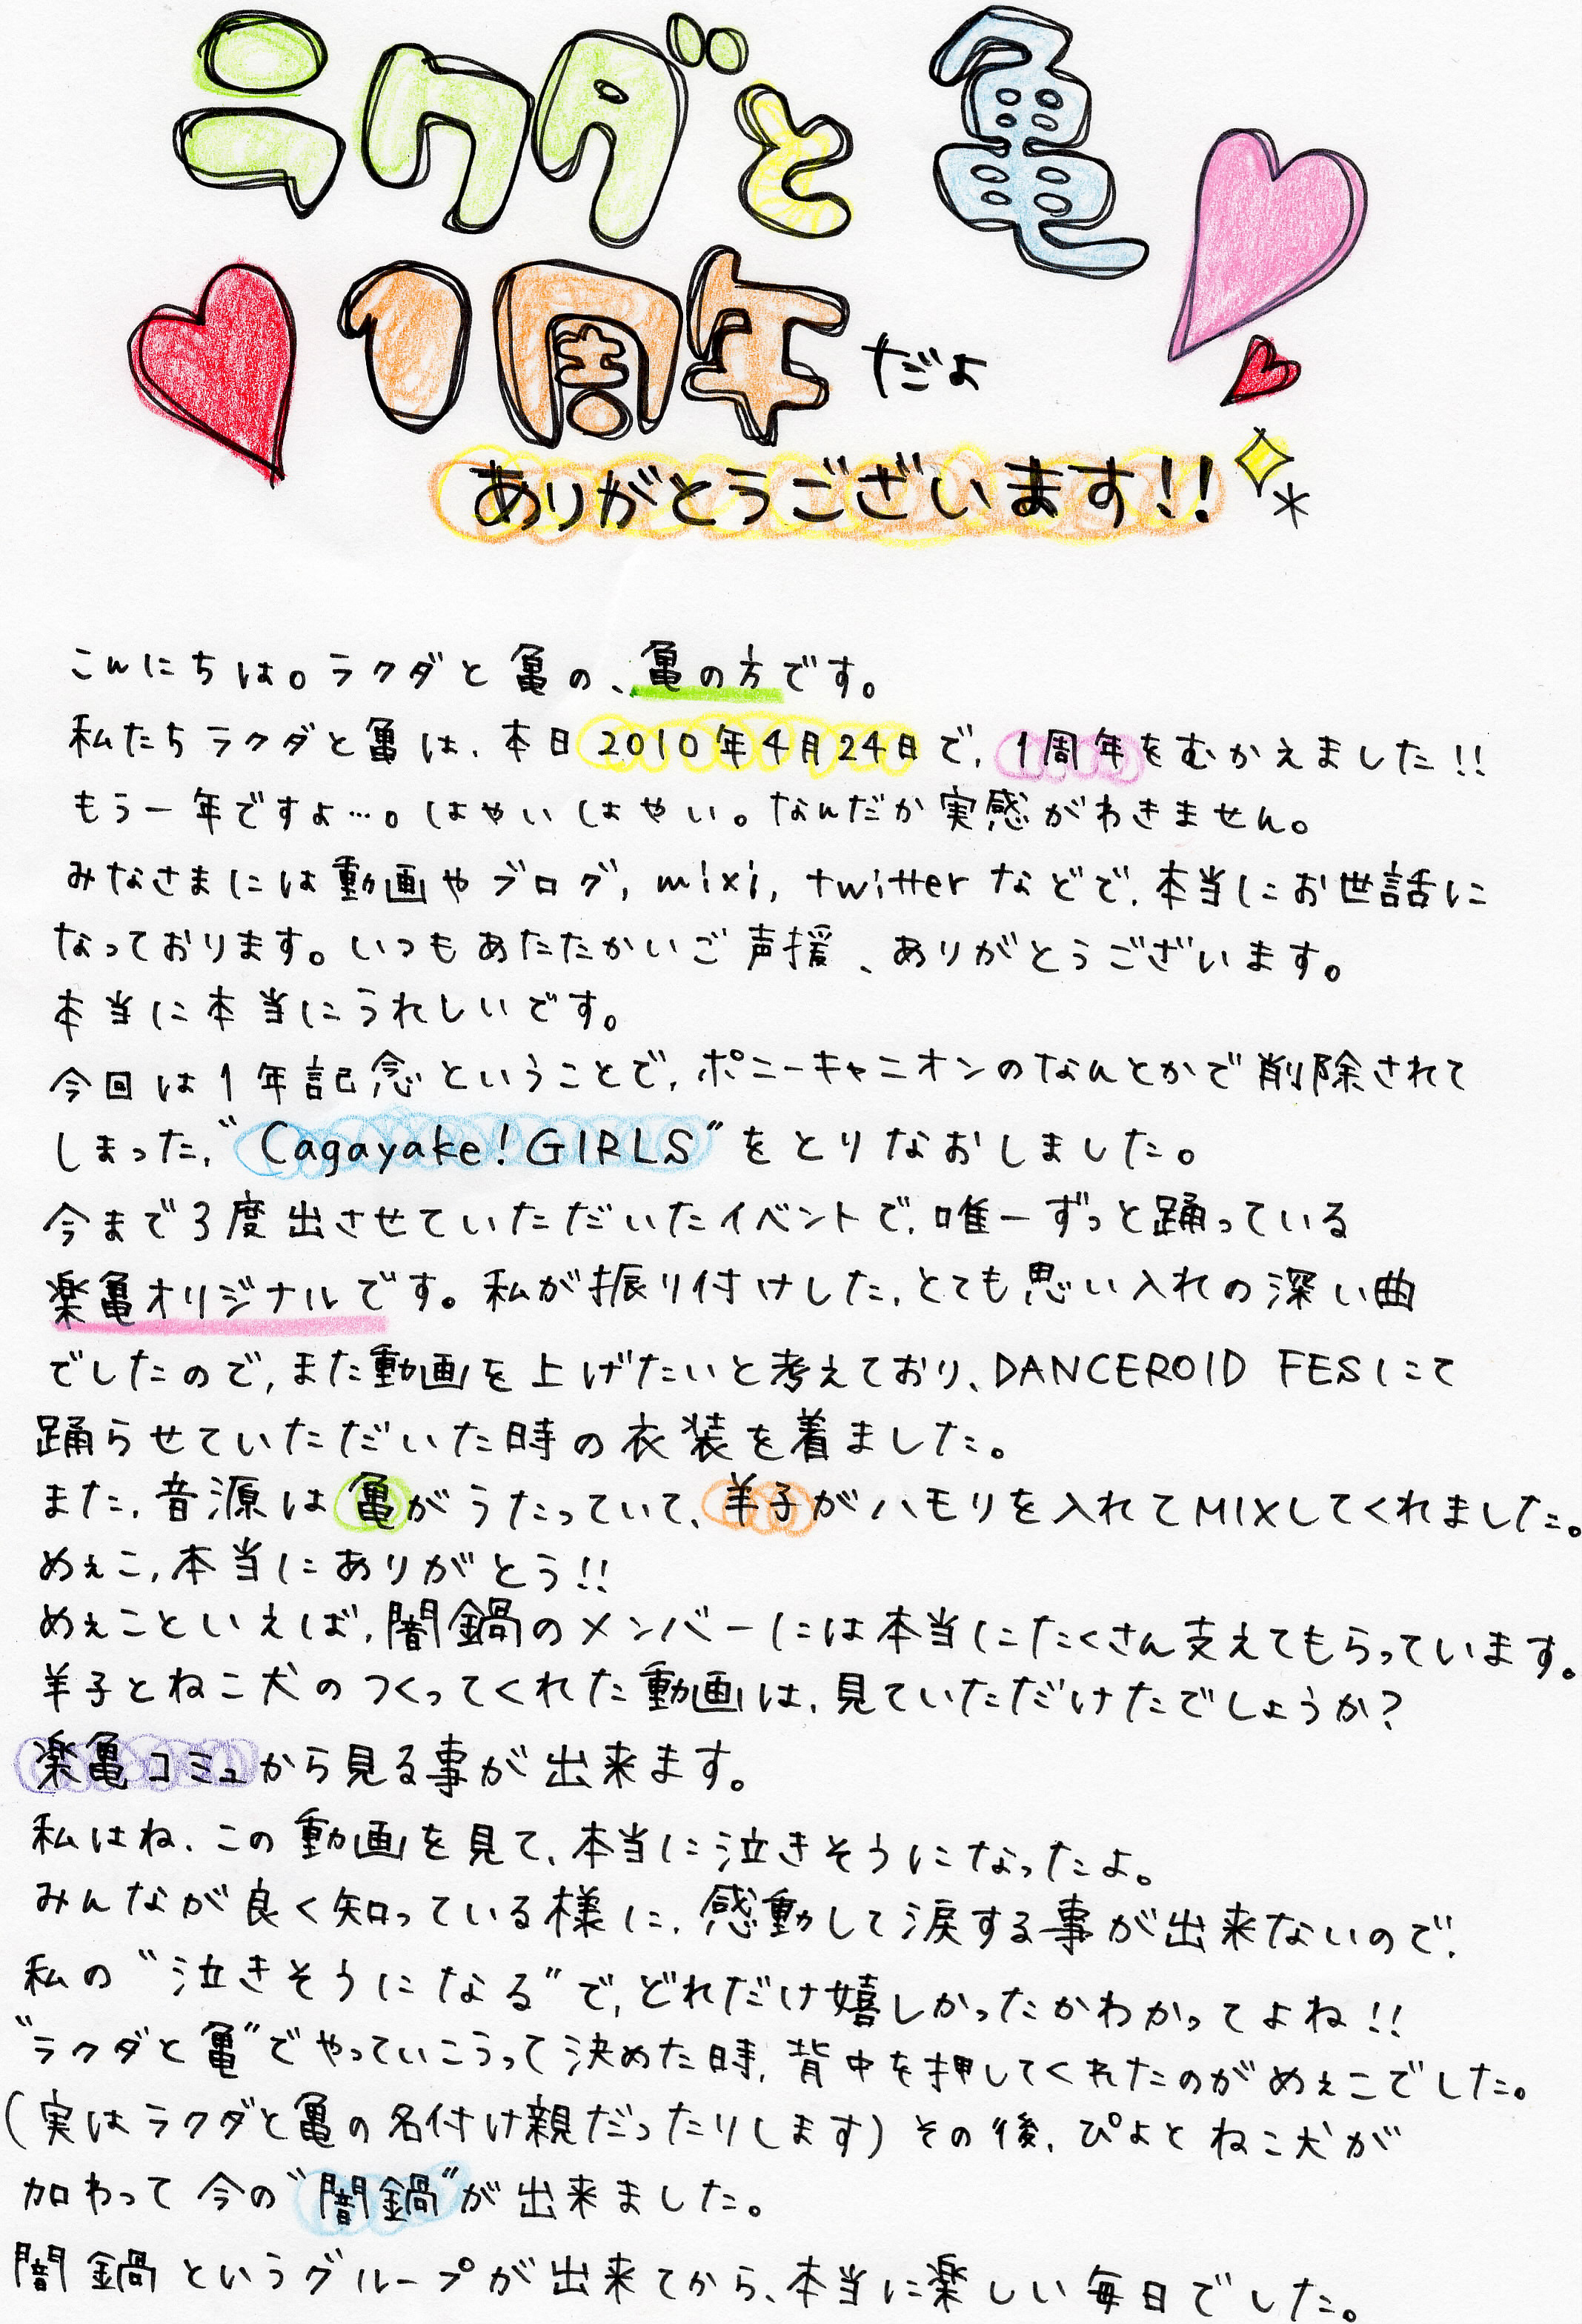 ラクダと亀
1周年だよ
ありがとうございます!!
こんにちは。ラクダと亀の、亀の方です。
私たちラクダと亀は、本日2010年4月24日で、1周年をむかえました!!
もう一年ですよ…。はやいはやい。なんだか実感がわきません。
みなさまには動画やブログ, mixi, twitterなどで、本当にお世話に
なっております。いつもあたたかいご声援、ありがとうございます。
本当に本当にうれしいです。
今回は1年記念ということで、ポニーキャニオンのなんとかで削除されて
しまった、“Cagayake!GIRLS”をとりなおしました。
今まで3度出させていただいたイベントで、唯一ずっと踊っている
楽亀オリジナルです。私が振り付けした、とても思い入れの深い曲
でしたので、また動画を上げたいと考えており、DANCEROID FESにて
踊らせていただいた時の衣装を着ました。
また、音源は亀がうたっていて、羊子がハモリを入れてMIXしてくれました。
めぇこ、本当にありがとう!!
めぇこといえば、闇鍋のメンバーには本当にたくさん支えてもらっています。
羊子とねこ犬のつくってくれた動画は、見ていただけたでしょうか?
楽亀コミュから見る事が出来ます。
私はね、この動画を見て、本当に泣きそうになったよ。
みんなが良く知っている様に、感動して涙する事が出来ないので、
私の“泣きそうになる”で、どれだけ嬉しかったかわかってよね!!
“ラクダと亀”でやっていこうって決めた時、背中を押してくれたのがめぇこでした。
(実はラクダと亀の名付け親だったりします)その後、ぴよとねこ犬が
加わって今の“闇鍋”が出来ました。
闇鍋というグループが出来てから、本当に楽しい毎日でした。